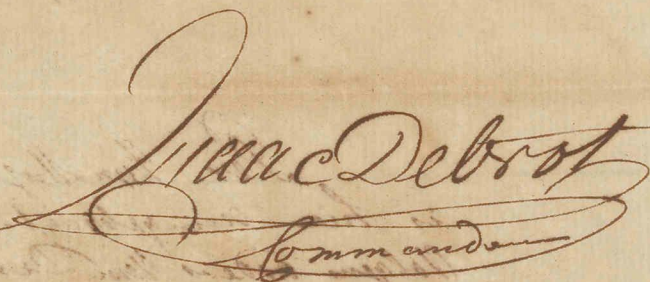 Isaac Debrot
Commandeur